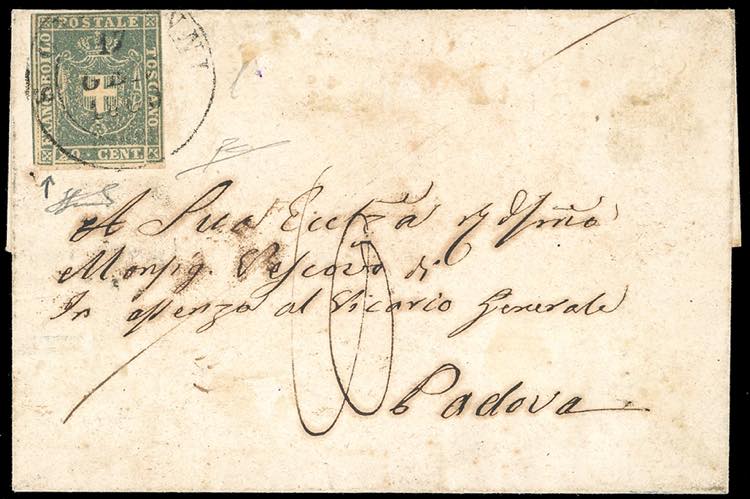 FRANCOBOLLO
POSTALE
TOSCANO
20 CENT.
17
GE
A Sua Ecc̃za R̃
Monsig. Vescovo di
In assenza al Vicario Generale
Padova